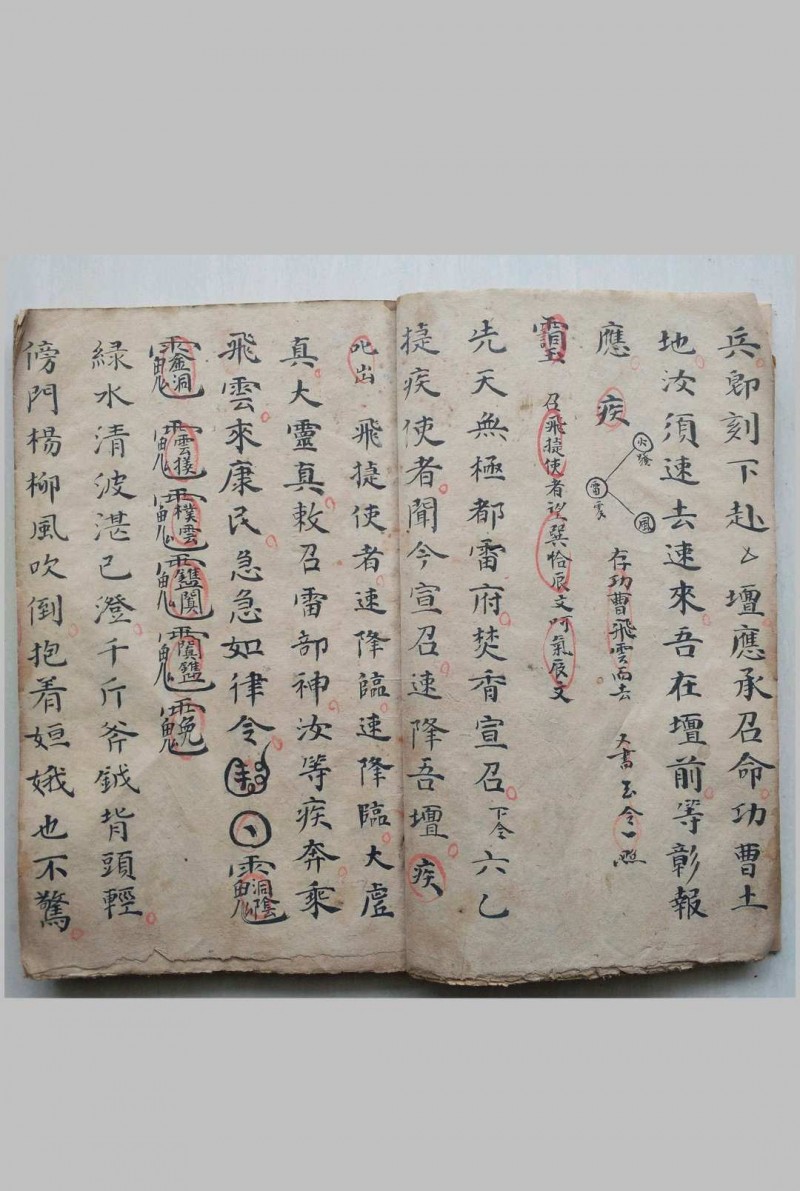 兵卽刻下赴上壇應承召命功曹土
地汝須速去速來吾在壇前等彰報
應 疾
火發
雷霹
風
存功曹飛雲而去
大書玉令一照
召飛捷使者望巽恰辰文呵氣辰文
先天無極都雷府焚香宣召下令六乙
捷疾使者聞今宣召速降吾壇疾
叱出 飛捷使者速降臨速降臨大虛
真大靈真敕召雷部神汝等疾奔乘
飛雲來康民急急如律令
綠水清波湛已澄千斤斧鉞背頭輕
傍門楊柳風吹倒抱着姮娥也不驚